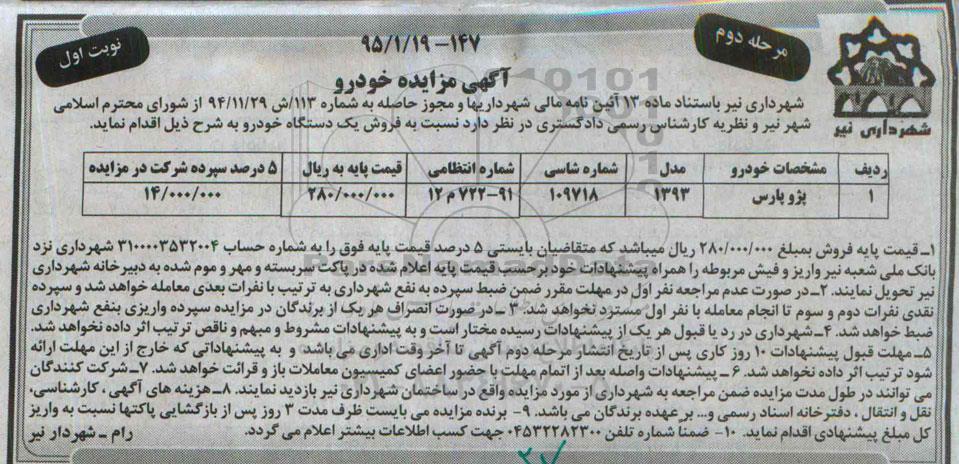 مرحله دوم
نوبت اول
۹۵/۱/۱۹ -۱۴۷
آگهی مزایده خودرو
شهرداری نیر
شهرداری نیر باستناد ماده ۱۳ آئین نامه مالی شهرداریها و مجوز حاصله به شماره ۱۱۳/ش ۹۴/۱۱/۲۹ از شورای محترم اسلامی
شهر نیر و نظریه کارشناس رسمی دادگستری در نظر دارد نسبت به فروش یک دستگاه خودرو به شرح ذیل اقدام نماید.
ردیف مشخصات خودرو مدل شماره شاسی شماره انتظامی قیمت پایه به ریال ۵ درصد سپرده شرکت در مزایده
۱ پژو پارس ۱۳۹۳ ۱۰۹۷۱۸ ۹۱-۷۲۲ م ۱۲ ۲۸۰/۰۰۰/۰۰۰ ۱۴/۰۰۰/۰۰۰
۱ـ قیمت پایه فروش بمبلغ ۲۸۰/۰۰۰/۰۰۰ ریال میباشد که متقاضیان بایستی ۵ درصد قیمت پایه فوق را به شماره حساب ۳۱۰۰۰۰۳۵۳۲۰۰۴ شهرداری نزد
بانک ملی شعبه نیر واریز و فیش مربوطه را همراه پیشنهادات خود برحسب قیمت پایه اعلام شده در پاکت سربسته و مهر و موم شده به دبیرخانه شهرداری
نیر تحویل نمایند. ۲ـ در صورت عدم مراجعه نفر اول در مهلت مقرر ضمن ضبط سپرده به نفع شهرداری به ترتیب با نفرات بعدی معامله خواهد شد و سپرده
نقدی نفرات دوم و سوم تا انجام معامله با نفر اول مسترد نخواهد شد. ۳ ـ در صورت انصراف هر یک از برندگان در مزایده سپرده واریزی بنفع شهرداری
ضبط خواهد شد. ۴ـ شهرداری در رد یا قبول هر یک از پیشنهادات رسیده مختار است و به پیشنهادات مشروط و مبهم و ناقص ترتیب اثر داده نخواهد شد.
۵ـ مهلت قبول پیشنهادات ۱۰ روز کاری پس از تاریخ انتشار مرحله دوم آگهی تا آخر وقت اداری می باشد و به پیشنهاداتی که خارج از این مهلت ارائه
شود ترتیب اثر داده نخواهد شد. ۶ ـ پیشنهادات واصله بعد از اتمام مهلت با حضور اعضای کمیسیون معاملات باز و قرائت خواهد شد. ۷ـ شرکت کنندگان
می توانند در طول مدت مزایده ضمن مراجعه به شهرداری از مورد مزایده واقع در ساختمان شهرداری نیر بازدید نمایند. ۸ـ هزینه های آگهی ، کارشناسی،
نقل و انتقال ، دفترخانه اسناد رسمی و... بر عهده برندگان می باشد. ۹- برنده مزایده می بایست ظرف مدت ۳ روز پس از بازگشایی پاکتها نسبت به واریز
کل مبلغ پیشنهادی اقدام نماید. ۱۰- ضمناً شماره تلفن ۰۴۵۳۲۲۸۲۳۰۰ جهت کسب اطلاعات بیشتر اعلام می گردد.
رام ـ شهردار نیر